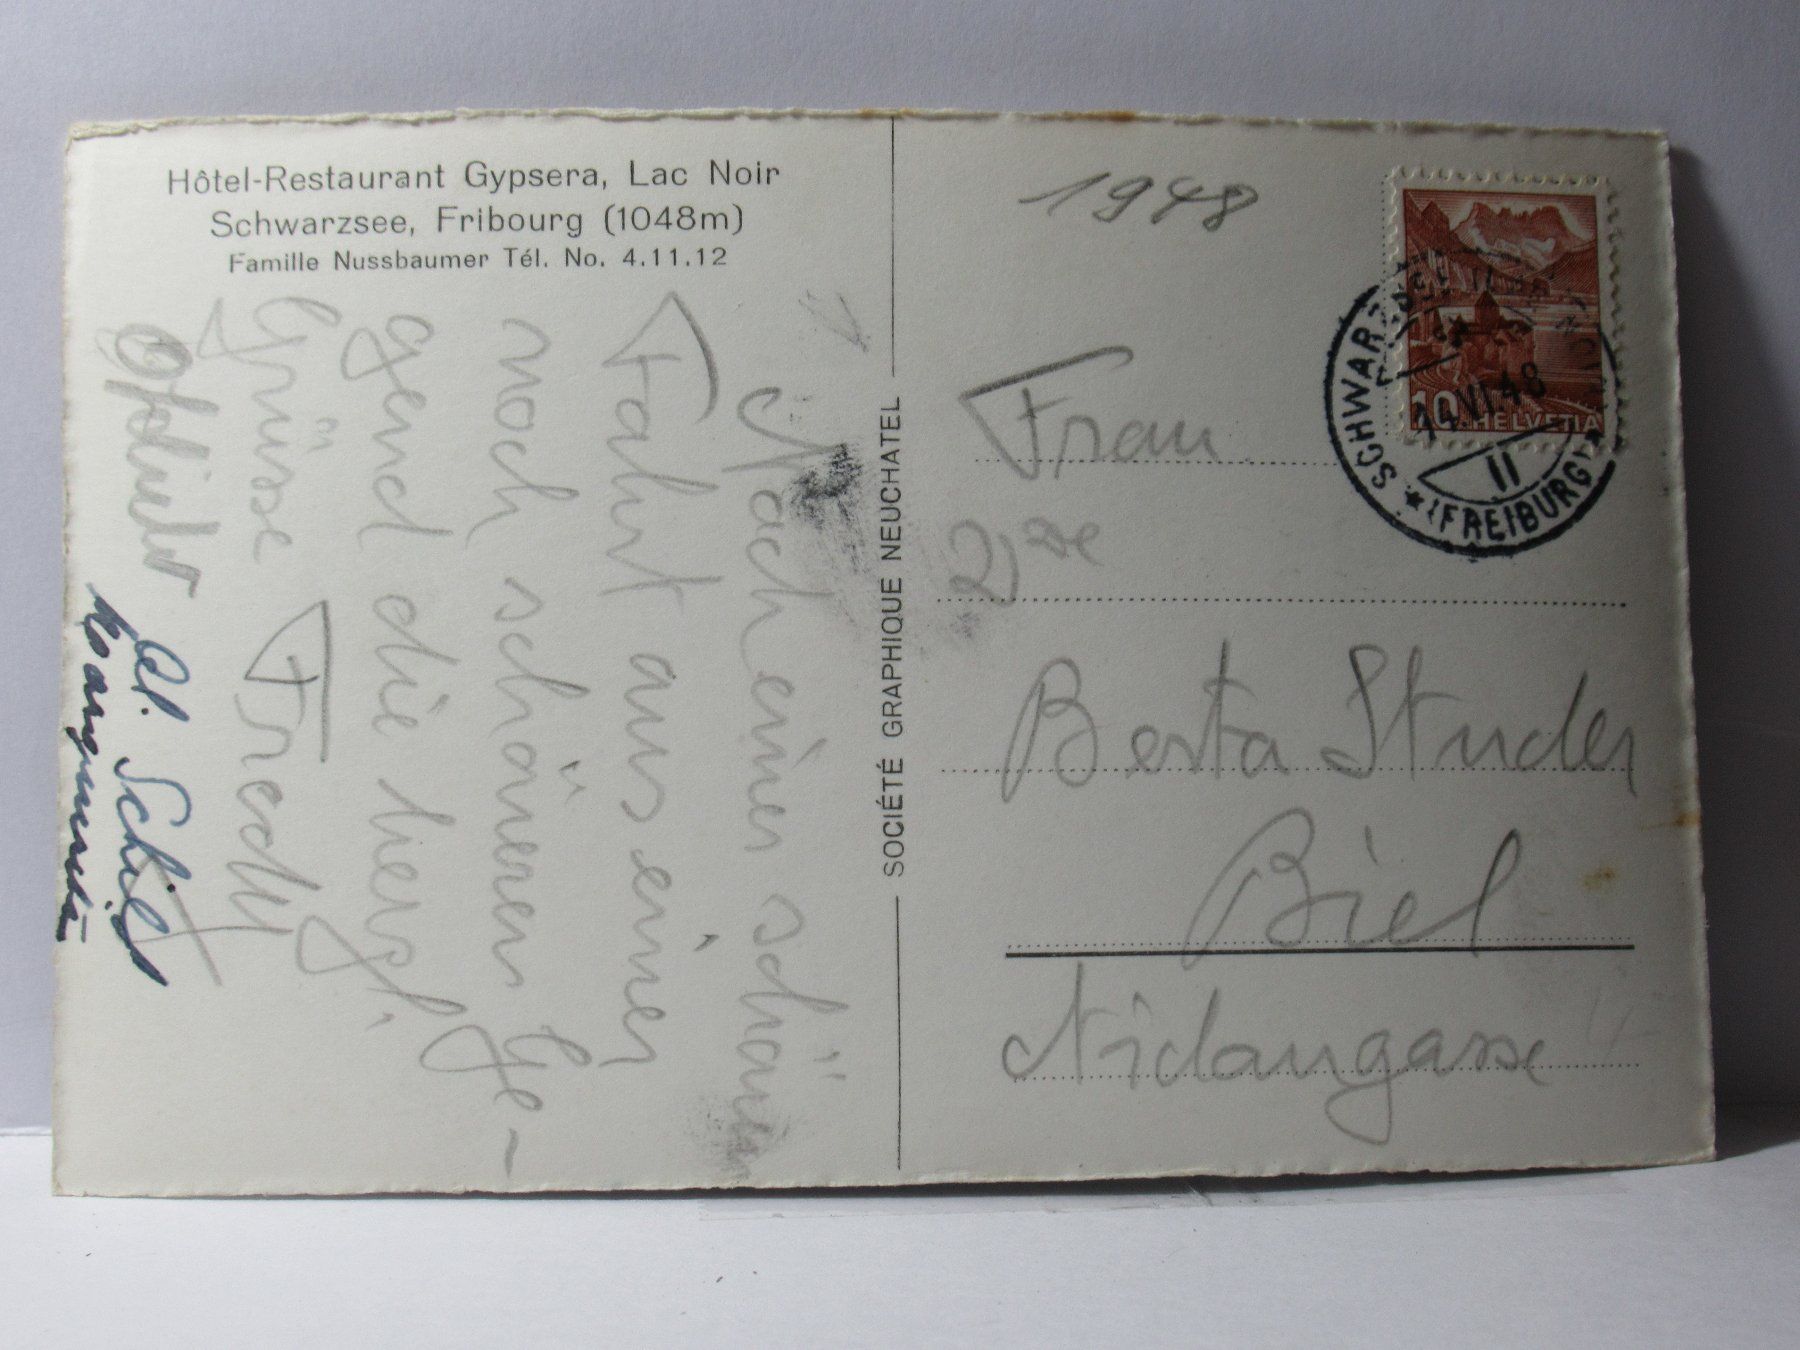 Hôtel-Restaurant Gypsera, Lac Noir
Schwarzsee, Fribourg (1048m)
Famille Nussbaumer Tél. No. 4.11.12
Nach einer schönen
Fahrt aus einer
noch schöneren Ge-
gend die herzl.
Grüsse Fredy
Schild
SOCIÉTÉ GRAPHIQUE NEUCHATEL
1948
10 HELVETIA
14.VI.48
II
(FREIBURG)
Frau
Berta Studer
Biel
Nidaugasse